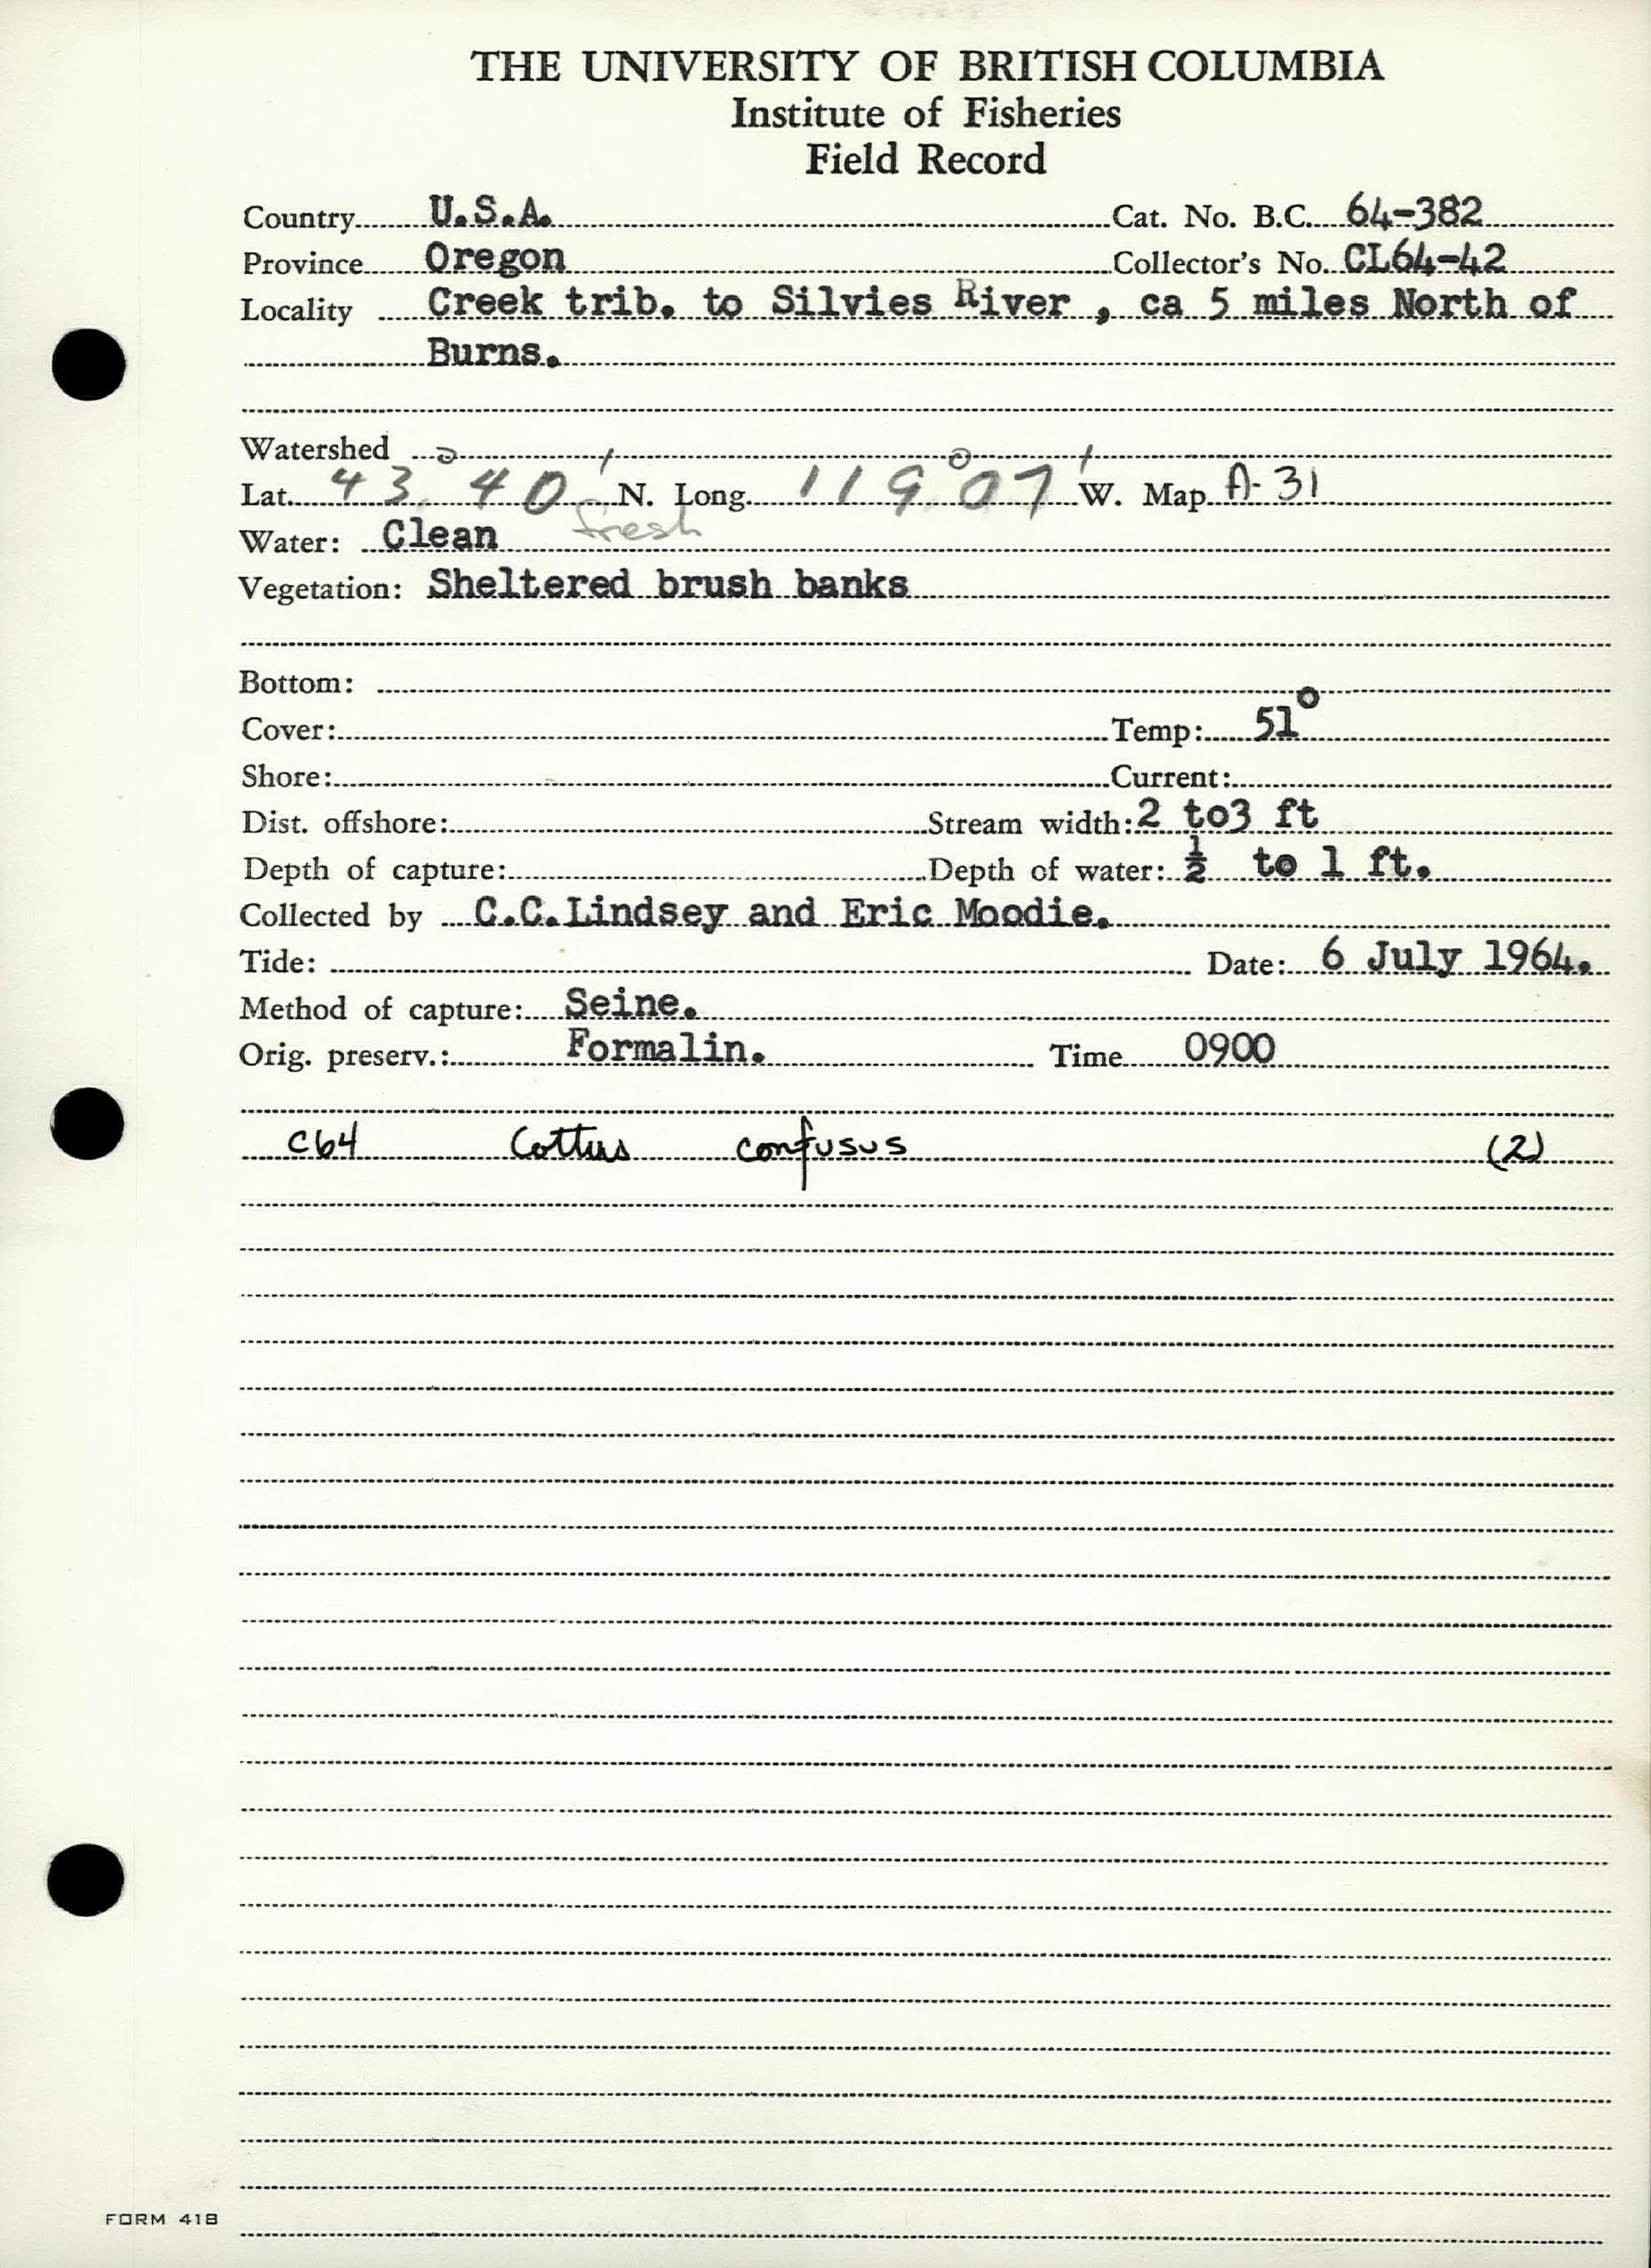 THE UNIVERSITY OF BRITISH COLUMBIA
Institute of Fisheries
Field Record
Country U.S.A. Cat. No. B.C. 64-382
Province Oregon Collector's No. CL64-42
Locality Creek trib. to Silvies River , ca 5 miles North of
Burns.
Watershed
Lat. 43° 40' N. Long. 119° 07' W. Map A-31
Water: Clean fresh
Vegetation: Sheltered brush banks
Bottom:
Cover: Temp: 51°
Shore: Current:
Dist. offshore: Stream width: 2 to3 ft
Depth of capture: Depth of water: ½ to 1 ft.
Collected by C.C.Lindsey and Eric Moodie.
Tide: Date: 6 July 1964.
Method of capture: Seine.
Orig. preserv.: Formalin. Time 0900
C64 Cottus confusus (2)
FORM 418